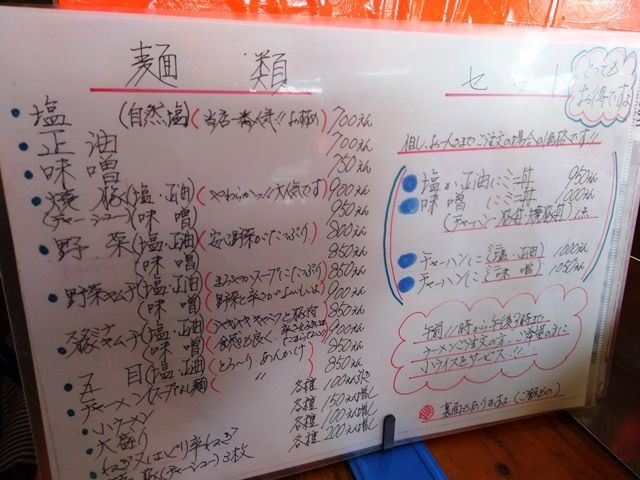 麺 類
塩 (自然塩)(当店一番人気!! お極め) 700えん
正油 700えん
味噌 750えん
焼豚(塩・正油)(やわらかっ!! 大人気です) 900えん
(チャーシュー)(味噌) 950えん
野菜(塩・正油)(安心野菜がたっぷり) 800えん
(味噌) 850えん
野菜キムチ(塩・正油)(まろやかスープにたっぷり) 850えん
(味噌) 900えん
(塩・正油)(シャキシャキキャベツと豚肉
(味噌) 900えん
五目(塩・正油)(とろ〜り、あんかけ) 850えん
チャーメン(スープなし麺) 850えん
小ラーメン 各種 100えん引き
大盛り 各種 150えん増し
ねぎ又はピリ辛ねぎ 各種 100えん増し
(チャーシュー)3枚 各種 200えん増し
セット
とっても
お得ですよ
但し、お一人さまでご注文の場合の価格です!!
塩か正油にミニ丼 950えん
味噌にミニ丼 1000えん
(チャーハン・豚丼・焼豚丼)1点
チャーハンにミニ塩・正油 1000えん
チャーハンにミニ味噌 1050えん
午前11時から午後3時まで
ラーメンご注文の方、ご希望の方に
小ライスをサービス!!
裏面もありますよ